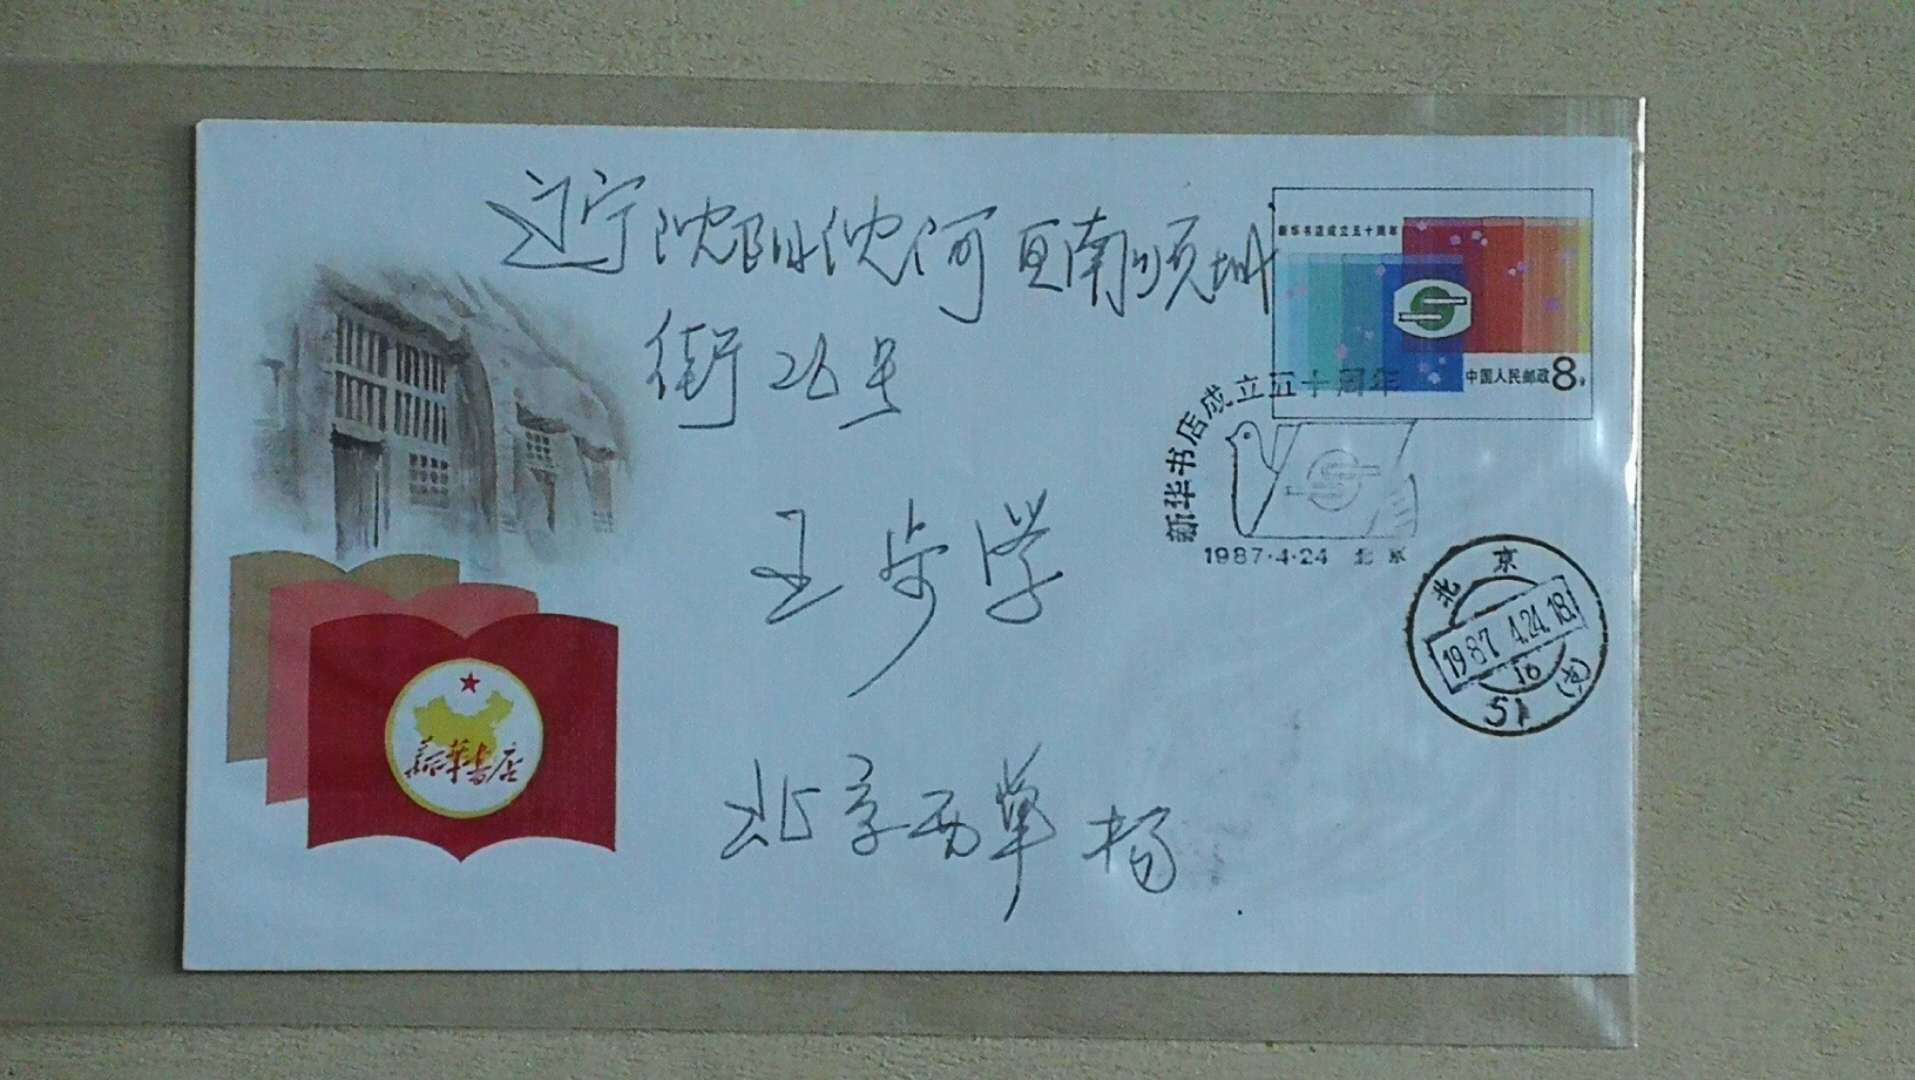 辽宁沈阳沈河区南顺城
街26号
王步学
北京西单 杨
新华书店成立五十周年
中国人民邮政8分
新华书店成立五十周年
1987·4·24 北京
北京
1987.4.24.18
16
51 (支)
新华书店